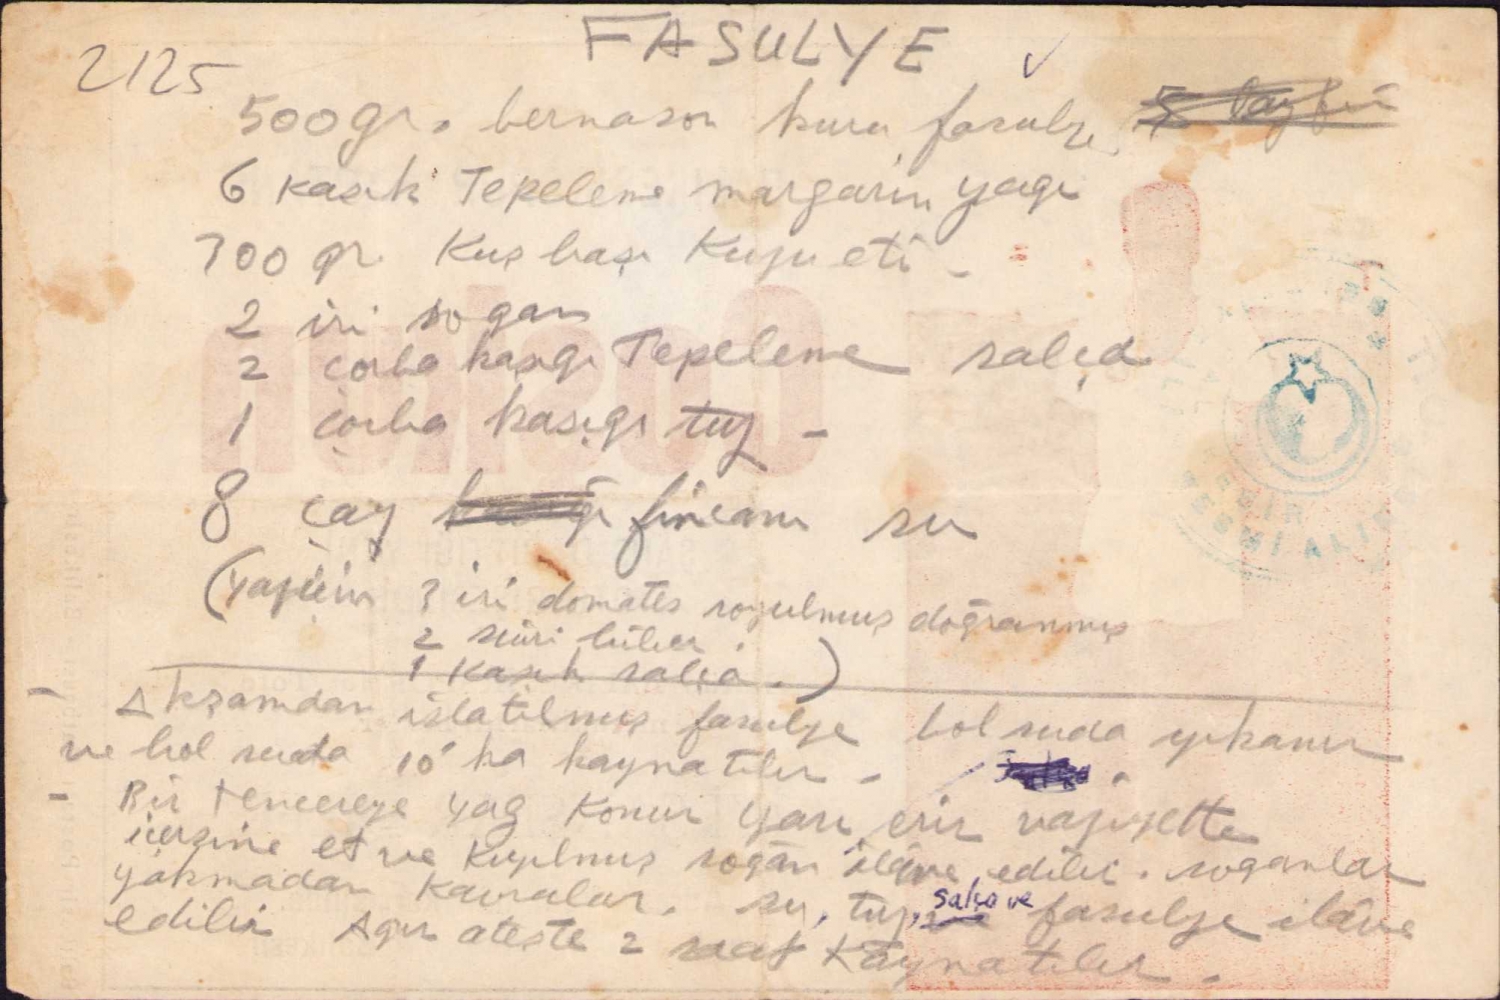 FASULYE
2125
500gr. bernason kuru fasulye
6 kaşık Tepeleme margarin yagı
700 gr. Kuş başı Kuyu eti -
2 iri sogan
2 çorba kaşıgı Tepeleme salça
1 çorba kaşıgı tuz -
8 çay fincanı su
(yaz için 3 iri domates soyulmuş doğranmış
2 sivri biber
1 kaşık salça.)
- Akşamdan islatılmış fasulye bol suda yıkanır
ve bol suda 10' ka kaynatılır -
- Bir tencereye yag konur yarı erir vaziyette
içersine et ve kıyılmış sogan ilâve edilir. soganlar
yakmadan kavrulur. su, tuz, salça ve fasulye ilâve
edilir Agır ateşte 2 saat Kaynatılır.